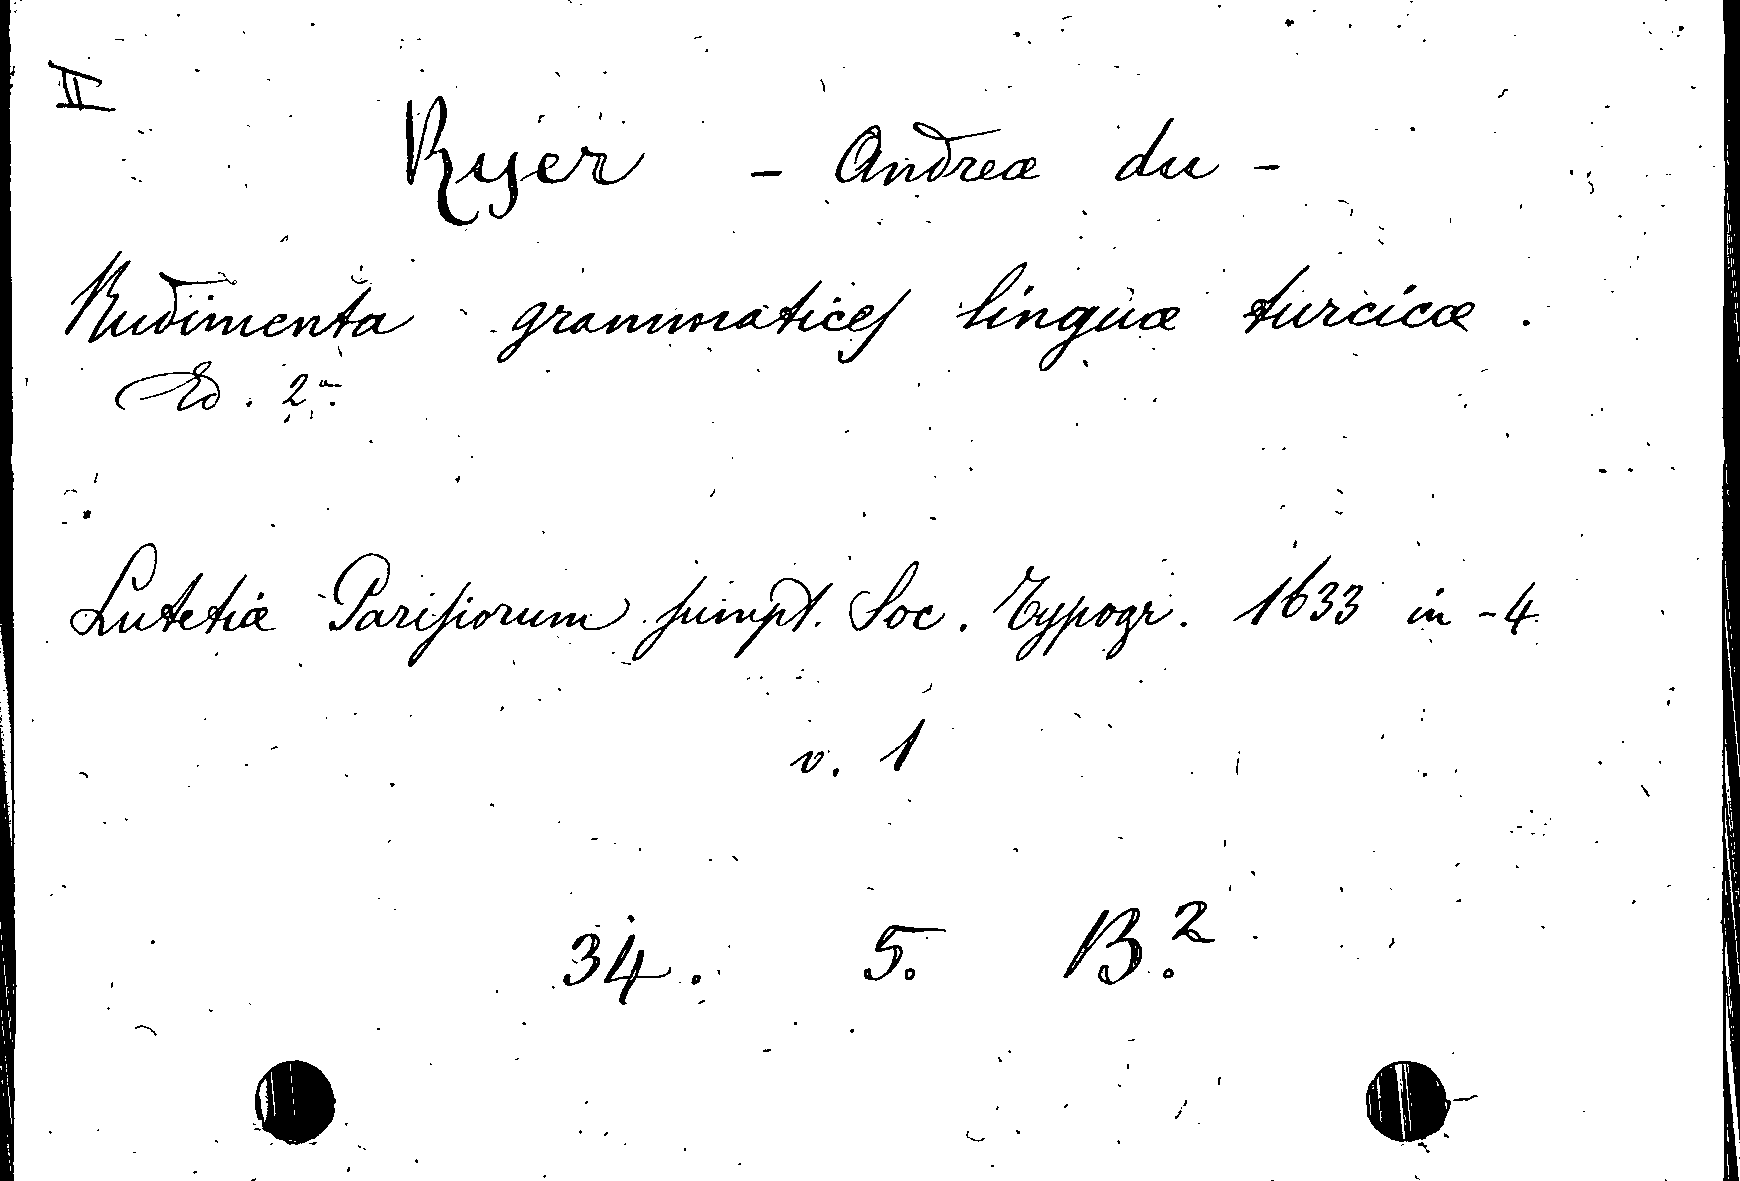 II
Ryer - Andreæ du -
Rudimenta grammatices linguæ turcicæ.
Ed. 2ª.
Lutetiæ Parisiorum sumpt. Soc. Typogr. 1633 in-4
v. 1
34. 5. B.²